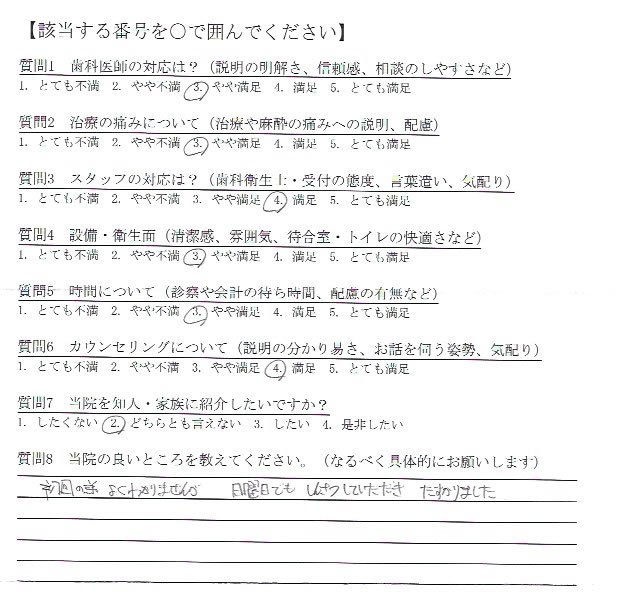 【該当する番号を○で囲んでください】
質問1 歯科医師の対応は？（説明の明解さ、信頼感、相談のしやすさなど）
1. とても不満 2. やや不満 3. やや満足 4. 満足 5. とても満足
質問2 治療の痛みについて（治療や麻酔の痛みへの説明、配慮）
1. とても不満 2. やや不満 3. やや満足 4. 満足 5. とても満足
質問3 スタッフの対応は？（歯科衛生士・受付の態度、言葉遣い、気配り）
1. とても不満 2. やや不満 3. やや満足 4. 満足 5. とても満足
質問4 設備・衛生面（清潔感、雰囲気、待合室・トイレの快適さなど）
1. とても不満 2. やや不満 3. やや満足 4. 満足 5. とても満足
質問5 時間について（診察や会計の待ち時間、配慮の有無など）
1. とても不満 2. やや不満 3. やや満足 4. 満足 5. とても満足
質問6 カウンセリングについて（説明の分かり易さ、お話を伺う姿勢、気配り）
1. とても不満 2. やや不満 3. やや満足 4. 満足 5. とても満足
質問7 当院を知人・家族に紹介したいですか？
1. したくない 2. どちらとも言えない 3. したい 4. 是非したい
質問8 当院の良いところを教えてください。（なるべく具体的にお願いします）
初回の為 よくわかりませんが 日曜日でも しんさつしていただき たすかりました